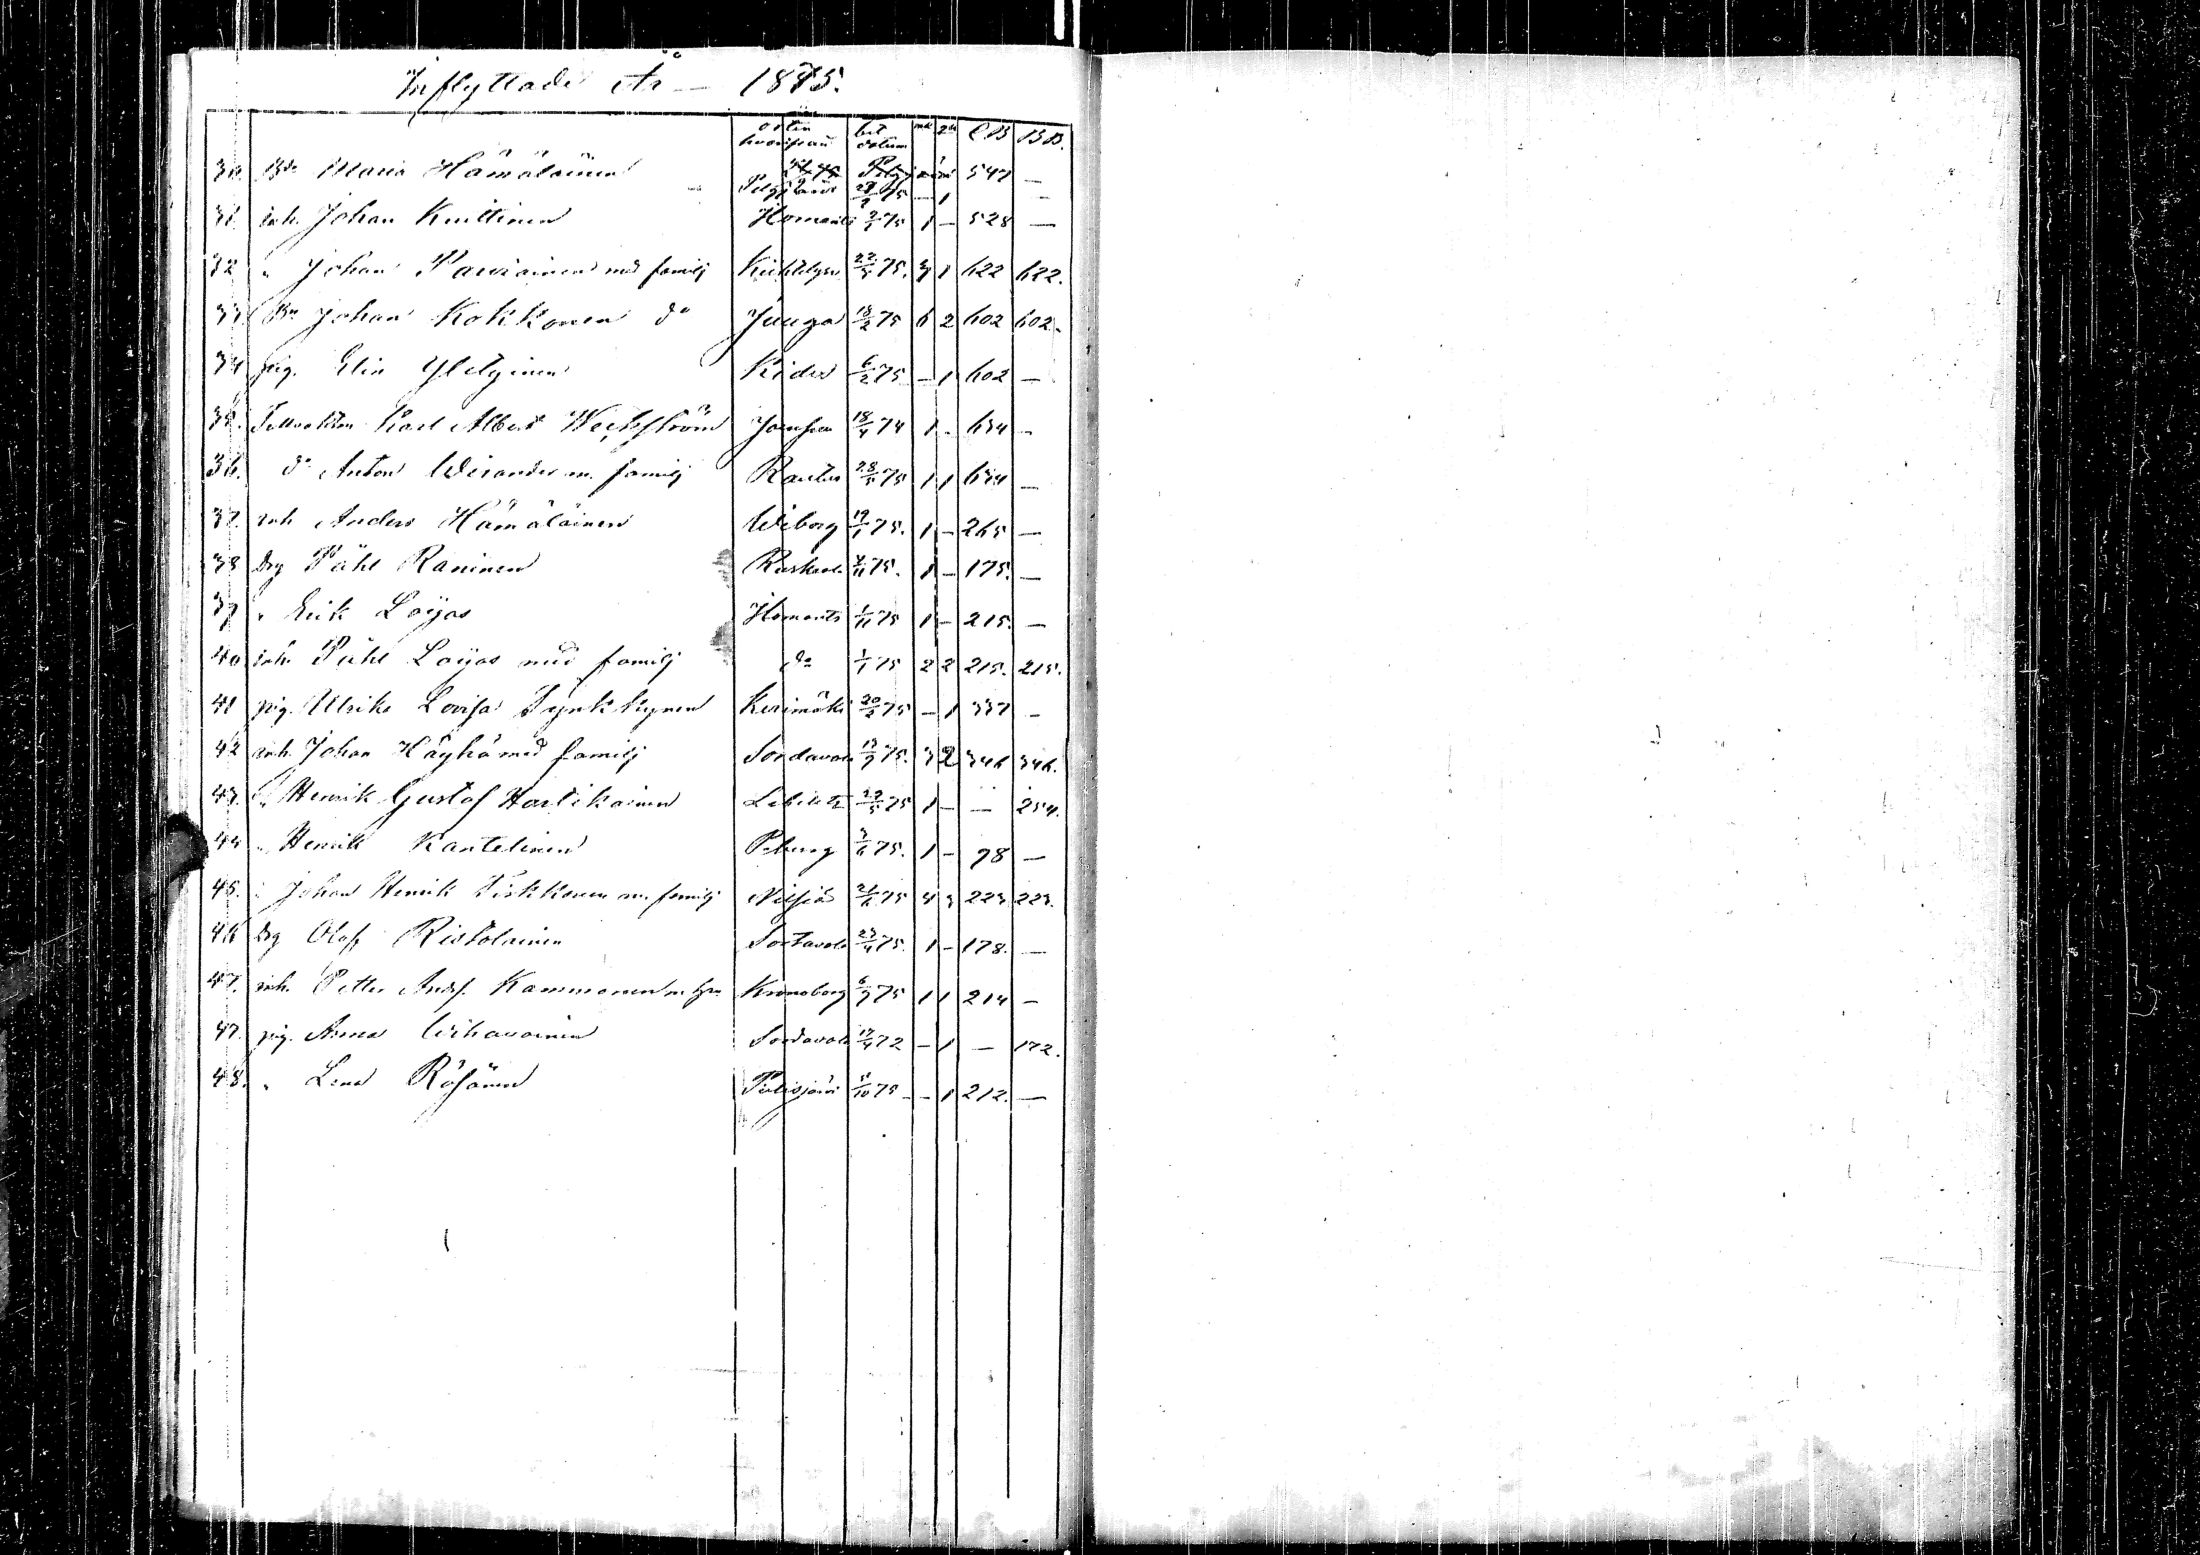 Inflyttade År — 1875.
orten hvarifrån bet. datum mk qk CB BB.
30. Maria Hämäläinen Pelgjärvi 75 — 1 547 —
31. inh. Johan Kuittinen Ilomants 75 1 — 528 —
32 " Johan Parviainen med familj Kihtelysv 22/5 75. 3 1 622 622.
33 Bn Johan Kokkonen do Juuga 18/2 75 6 2 602 602.
34 pig. Elin Kides 6/2 75 — 1 602 —
35. Karl Albert Weckström Joensuu 18/4 74 1 - 634 —
36. do Anton Wirander m. familj Rautus 28/5 75 1 1 634 —
37. inh Anders Hämäläinen Wiborg 19/1 75. 1 — 265 —
38 drg Påhl Raninen Ruskeala 75. 1 — 175. —
39 " Erik Loijas Ilomants 1/11 75 1 — 215. —
40 inh. Påhl Loijas med familj do 1/1 75 2 2 215. 215.
41 pig. Ulrika Lovisa Tynkkynen Kerimäki 20/2 75 — 1 337 —
42 inh. Johan Häyhä med familj Sordavala 75. 3 2 346 346.
43. " Henrik Gustaf Hartikainen Libelits 75 1 — — 254.
44 " Henrik Kantelinen P.burg 3/6 75. 1 — 98 —
45. " Johan Henrik Tirkkonen m. familj Nilsiä 75 4 3 223 223.
46 drg Olof Ristolainen Sortavala 23/4 75. 1 — 178. —
47. inh. Petter Andr. Kammonen m. Kronoborg 6/9 75 1 1 214 —
47. pig. Anna Wihavainen Sordavala 72 — 1 — 172.
48. " Lena Räsänen Pielisjärvi 75 — 1 212. —